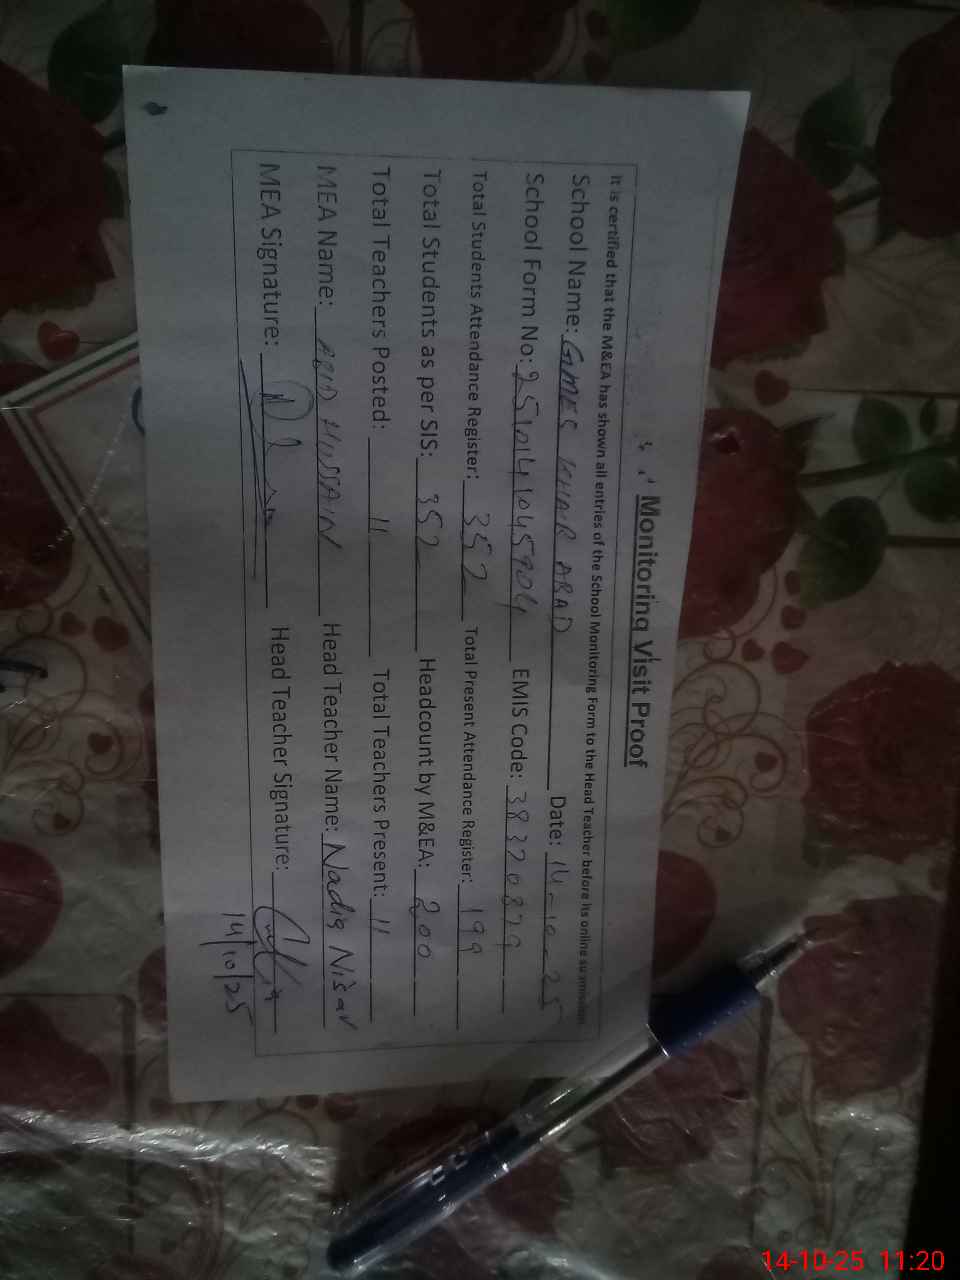 Monitoring Visit Proof
It is certified that the M&EA has shown all entries of the School Monitoring Form to the Head Teacher before its online submission.
School Name: GMES KHAIR ABAD Date: 14-10-25
School Form No: 2510141045904 EMIS Code: 38320879
Total Students Attendance Register: 352 Total Present Attendance Register: 199
Total Students as per SIS: 352 Headcount by M&EA: 200
Total Teachers Posted: 11 Total Teachers Present: 11
MEA Name: ABID HUSSAIN Head Teacher Name: Nadia Nisar
MEA Signature: Head Teacher Signature:
14/10/25
14-10-25 11:20